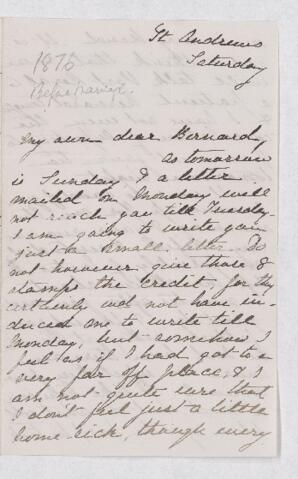 St Andrews
Saturday
1876
Before marriage
My own dear Bernard,
as tomorrow
is Sunday & a letter
mailed on Monday will
not reach you till Tuesday
I am going to write you
just a small letter. Do
not however give those 8
stamps the credit, for they
certainly wd not have in-
duced one to write till
Monday, but somehow I
feel as if I had got to a
very far off place, & I
am not quite sure that
I don't feel just a little
home-sick, though every